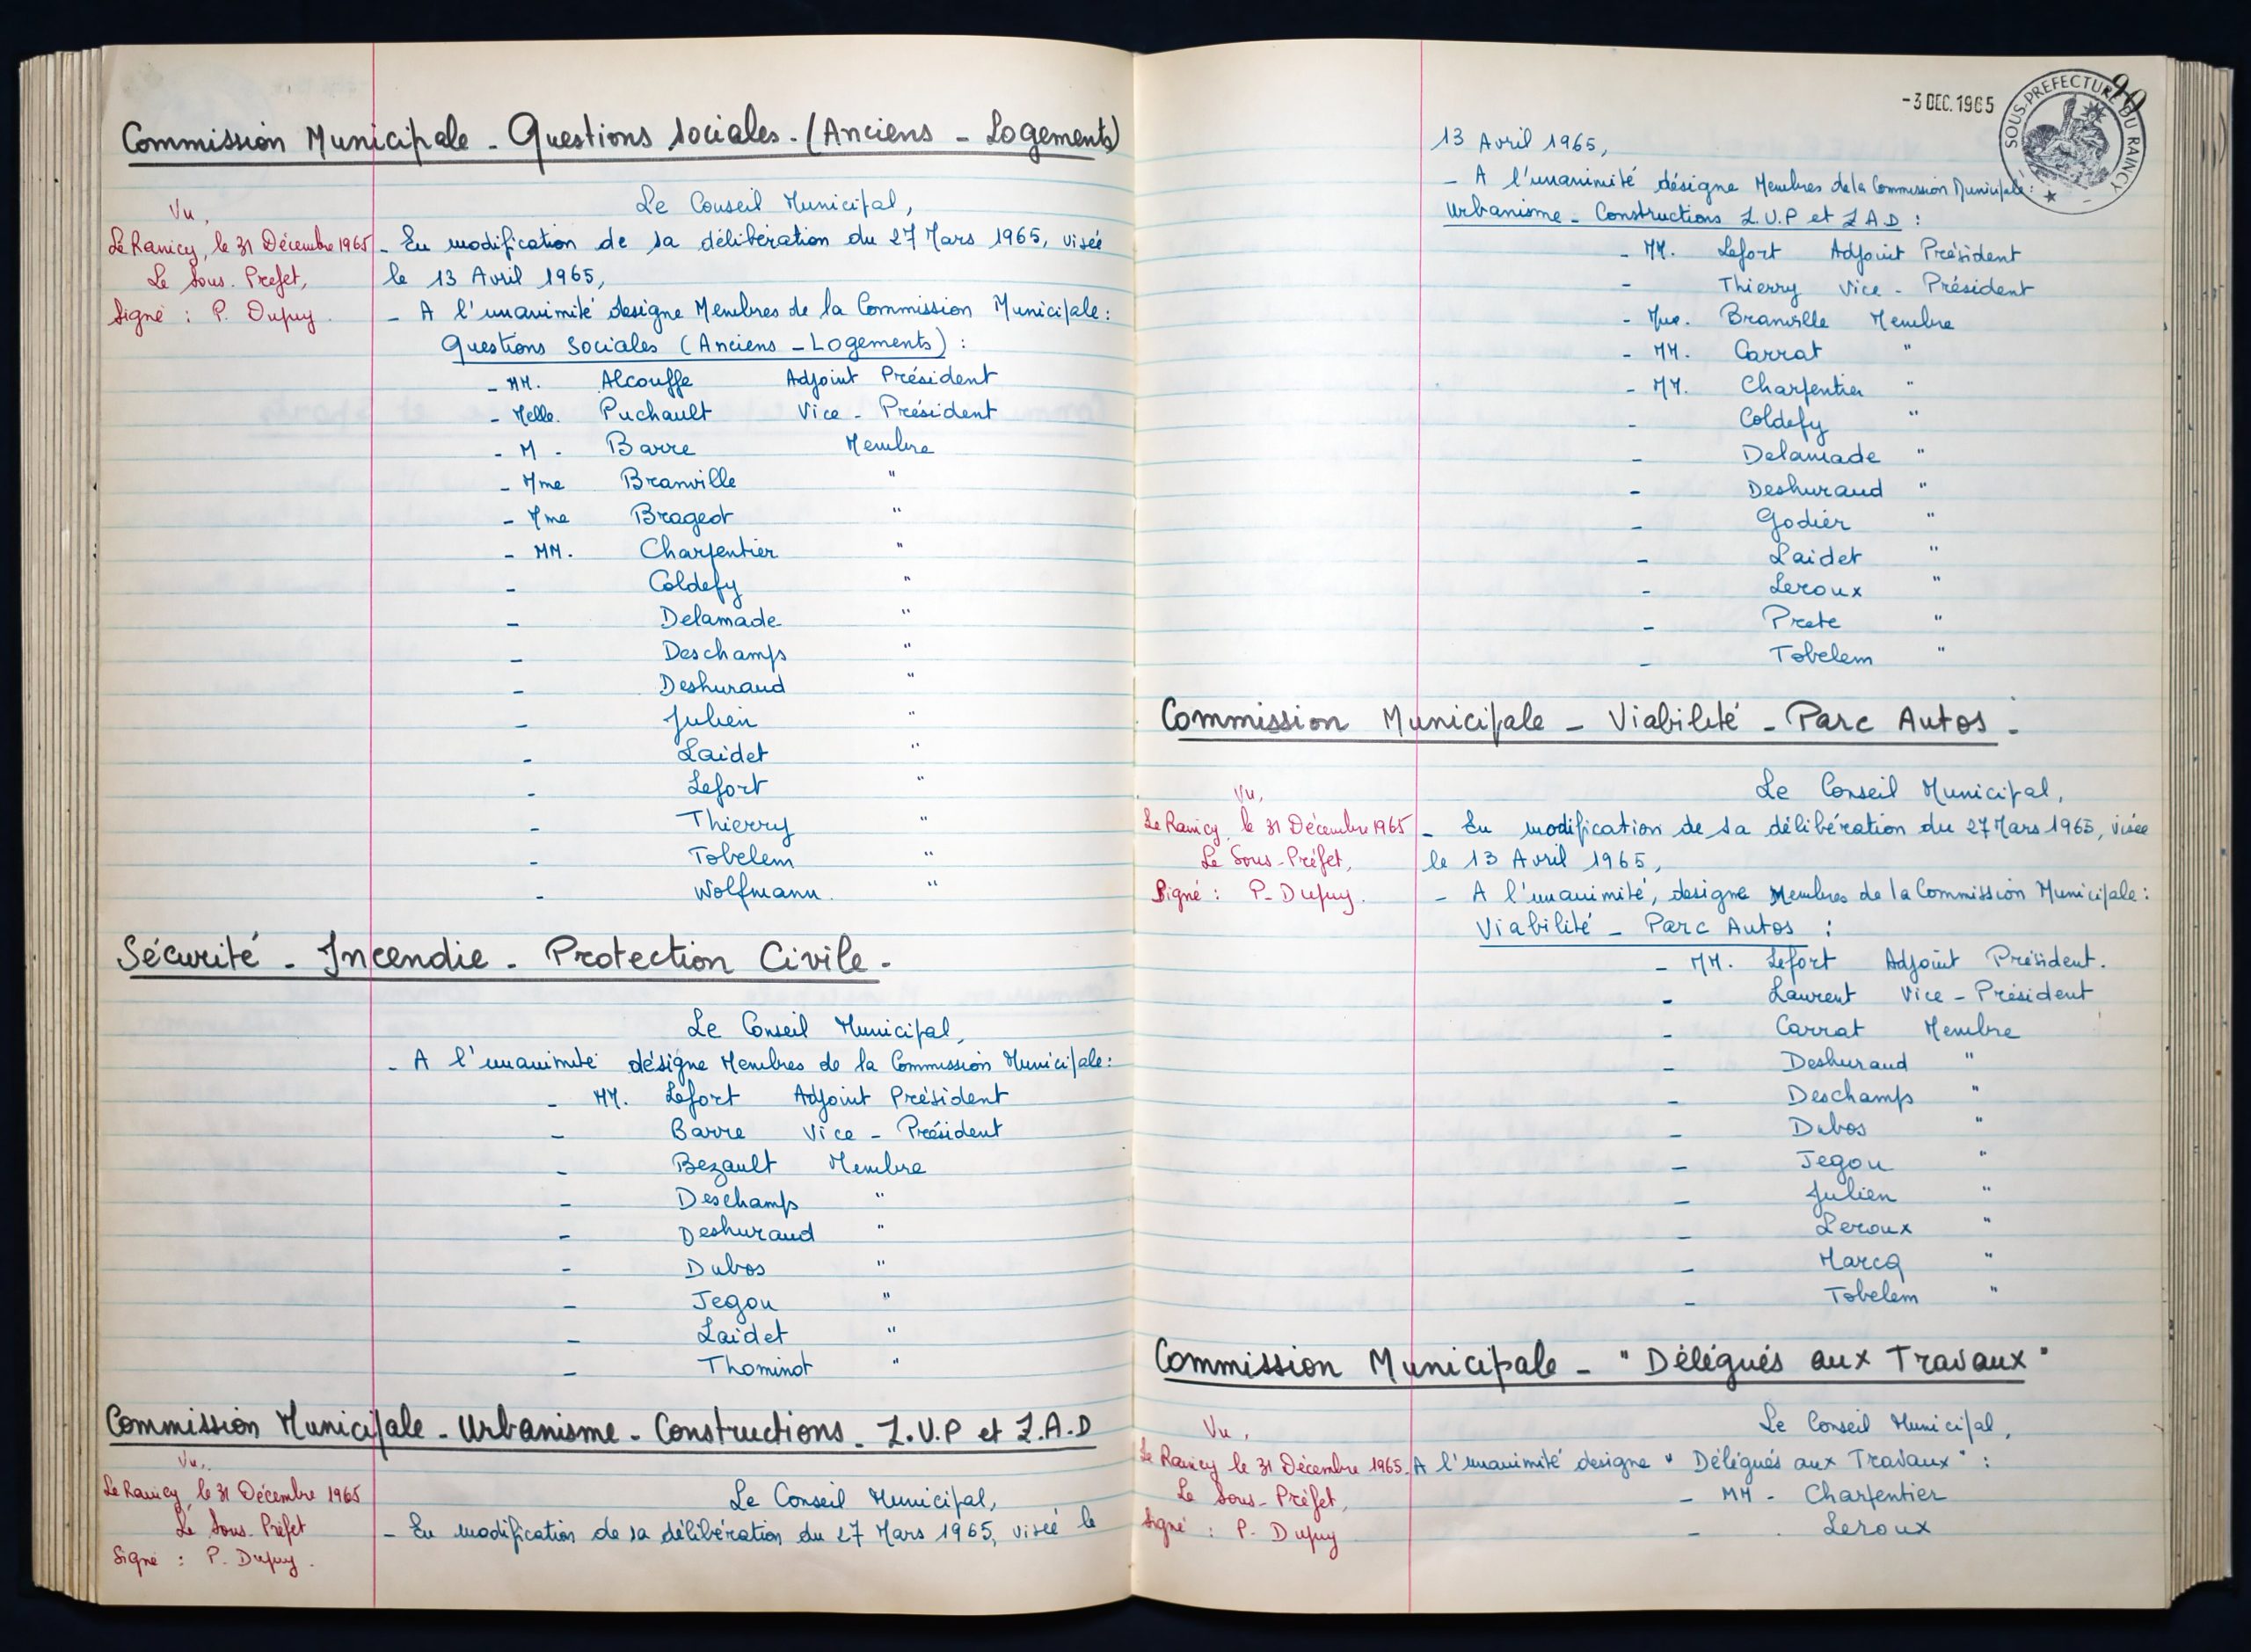 Commission Municipale - Questions Sociales - (Anciens - Logements)
Vu,
Le Raincy, le 31 Décembre 1965
Le Sous. Prefet,
Signé : P. Dupuy.
Le Conseil Municipal,
- En modification de sa délibération du 27 Mars 1965, visée
le 13 Avril 1965,
- A l'unanimité designe Membres de la Commission Municipale :
Questions Sociales (Anciens - Logements) :
- MM. Alcouffe Adjoint Président
- Melle. Puchault Vice - Président
- M - Barre Membre
- Mme Branville "
- Mme Brageot "
- MM. Charpentier "
- Coldefy "
- Delamade "
- Deschamps "
- Deshuraud "
- Julien "
- Laidet "
- Lefort "
- Thierry "
- Tobelem "
- Wolfmann. "
Sécurité - Incendie - Protection Civile -
Le Conseil Municipal,
- A l'unanimité désigne Membres de la Commission Municipale :
- MM. Lefort Adjoint Président
- Barre Vice - Président
- Bezault Membre
- Deschamps "
- Deshuraud "
- Dubos "
- Jegou "
- Laidet "
- Thominot "
Commission Municipale - Urbanisme - Constructions - Z.U.P et Z.A.D
Vu,
Le Raincy, le 31 Décembre 1965
Le Sous. Préfet
Signé : P. Dupuy.
Le Conseil Municipal,
- En modification de sa délibération du 27 Mars 1965, visée le
-3 DEC. 1965
SOUS-PREFECTURE DU RAINCY
90
13 Avril 1965,
- A l'unanimité désigne Membres de la Commission Municipale :
Urbanisme - Constructions Z.U.P et Z A D :
- MM. Lefort Adjoint Président
- Thierry Vice - Président
- Mme. Branville Membre
- MM. Carrat "
- MM. Charpentier "
- Coldefy "
- Delamade "
- Deshuraud "
- Godier "
- Laidet "
- Leroux "
- Prete "
- Tobelem "
Commission Municipale - Viabilité - Parc Autos -
Vu,
Le Raincy, le 31 Décembre 1965
Le Sous - Préfet,
Signé : P. Dupuy.
Le Conseil Municipal,
- En modification de sa délibération du 27 Mars 1965, visée
le 13 Avril 1965,
- A l'unanimité, designe Membres de la Commission Municipale :
Viabilité - Parc Autos :
- MM. Lefort Adjoint Président.
- Laurent Vice - Président
- Carrat Membre
- Deshuraud "
- Deschamps "
- Dubos "
- Jegou "
- Julien "
- Leroux "
- Marcq "
- Tobelem "
Commission Municipale - "Délégués aux Travaux"
Vu,
Le Raincy le 31 Décembre 1965.
Le Sous - Préfet,
Signé : P. Dupuy
Le Conseil Municipal,
A l'unanimité designe " Délégués aux Travaux" :
- MM - Charpentier
- Leroux